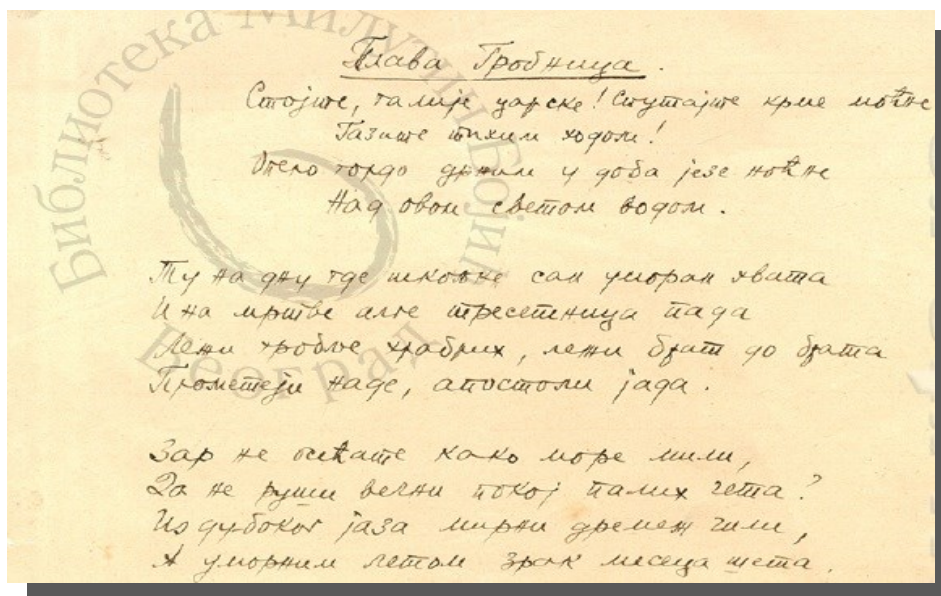 Плава Гробница.
Стојте, галије царске! Спутајте крме моћне
Газите тихим ходом!
Опело гордо држим у доба језе ноћне
Над овом светом водом.
Ту на дну где шкољке сан уморан хвата
И на мртве алге тресетница пада
Лежи гробље храбрих, лежи брат до брата
Прометеји наде, апостоли јада.
Зар не осећате како море мили,
Да не руши вечни покој палих чета?
Из дубоког јаза мирни дремеж чили,
А уморним летом зрак месеца шета.
Библиотека Милутин Бојић
Београд